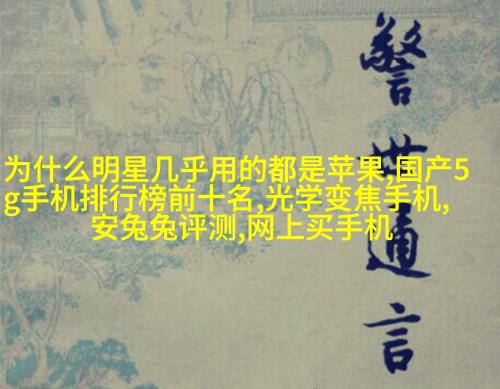 为什么明星几乎用的都是苹果,国产5
g手机排行榜前十名,光学变焦手机,
安兔兔评测,网上买手机
警世通言